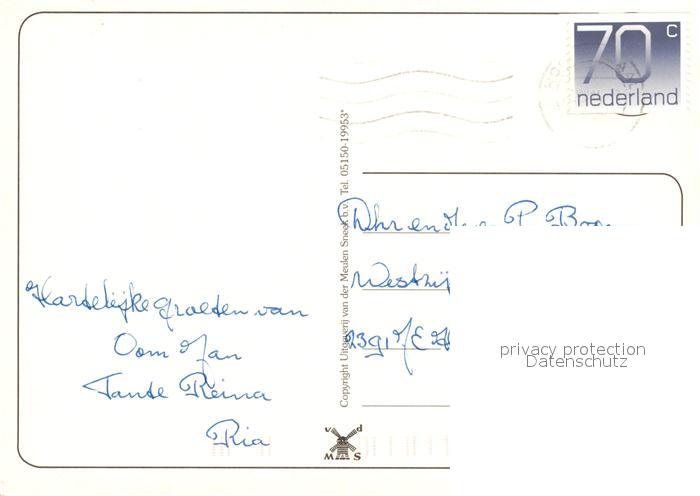 70 c
nederland
Hartelijke groeten van
Oom Jan
Tante Reina
Ria
Copyright Uitgeverij van der Meulen Sneek b.v. Tel. 05150-19953*
v d
M S
P. Boo
Westzij
2391
privacy protection
Datenschutz